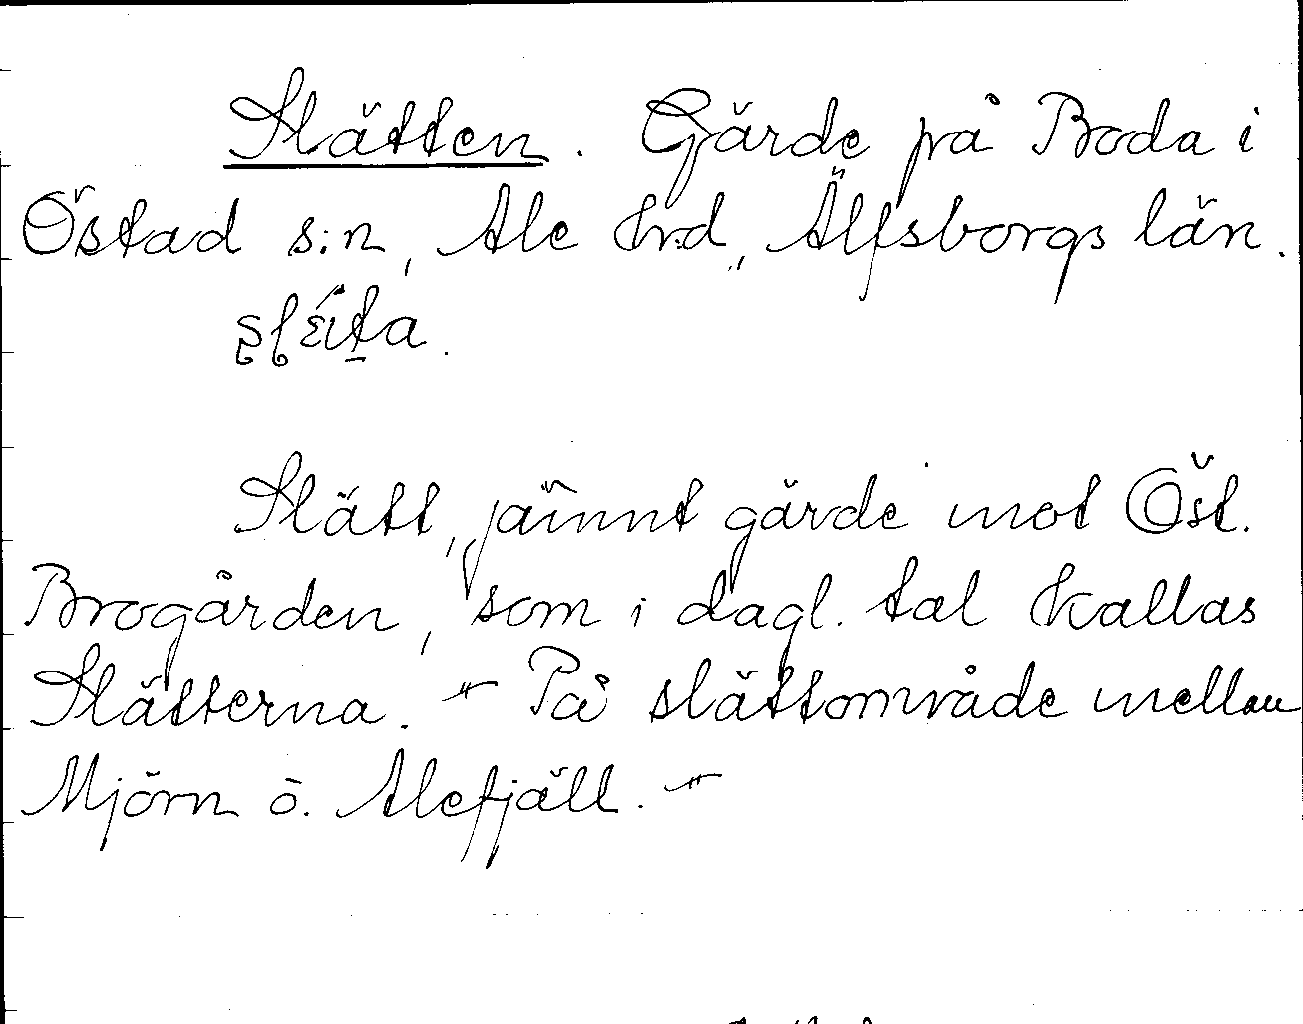 Slätten. Gärde på Boda i
Östad s:n, Ale hrd, Älfsborgs län.
Slätt, jämnt gärde mot Öst.
Brogården, som i dagl. tal kallas
Slätterna. - På slättområde mellan
Mjörn o. Alefjäll. -